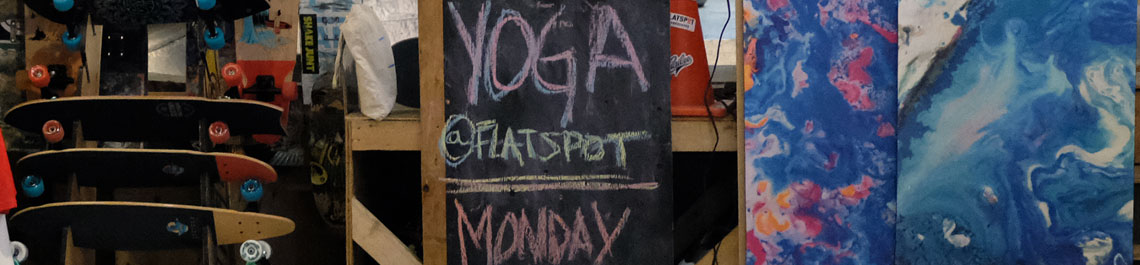 YOGA
@FLATSPOT
MONDAY